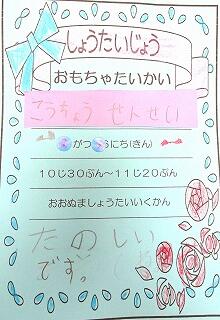 しょうたいじょう
おもちゃたいかい
こうちょう せんせい
がつ にち(きん)
10じ30ぷん~11じ20ぷん
おおぬましょうたいいくかん
たのしい
です。